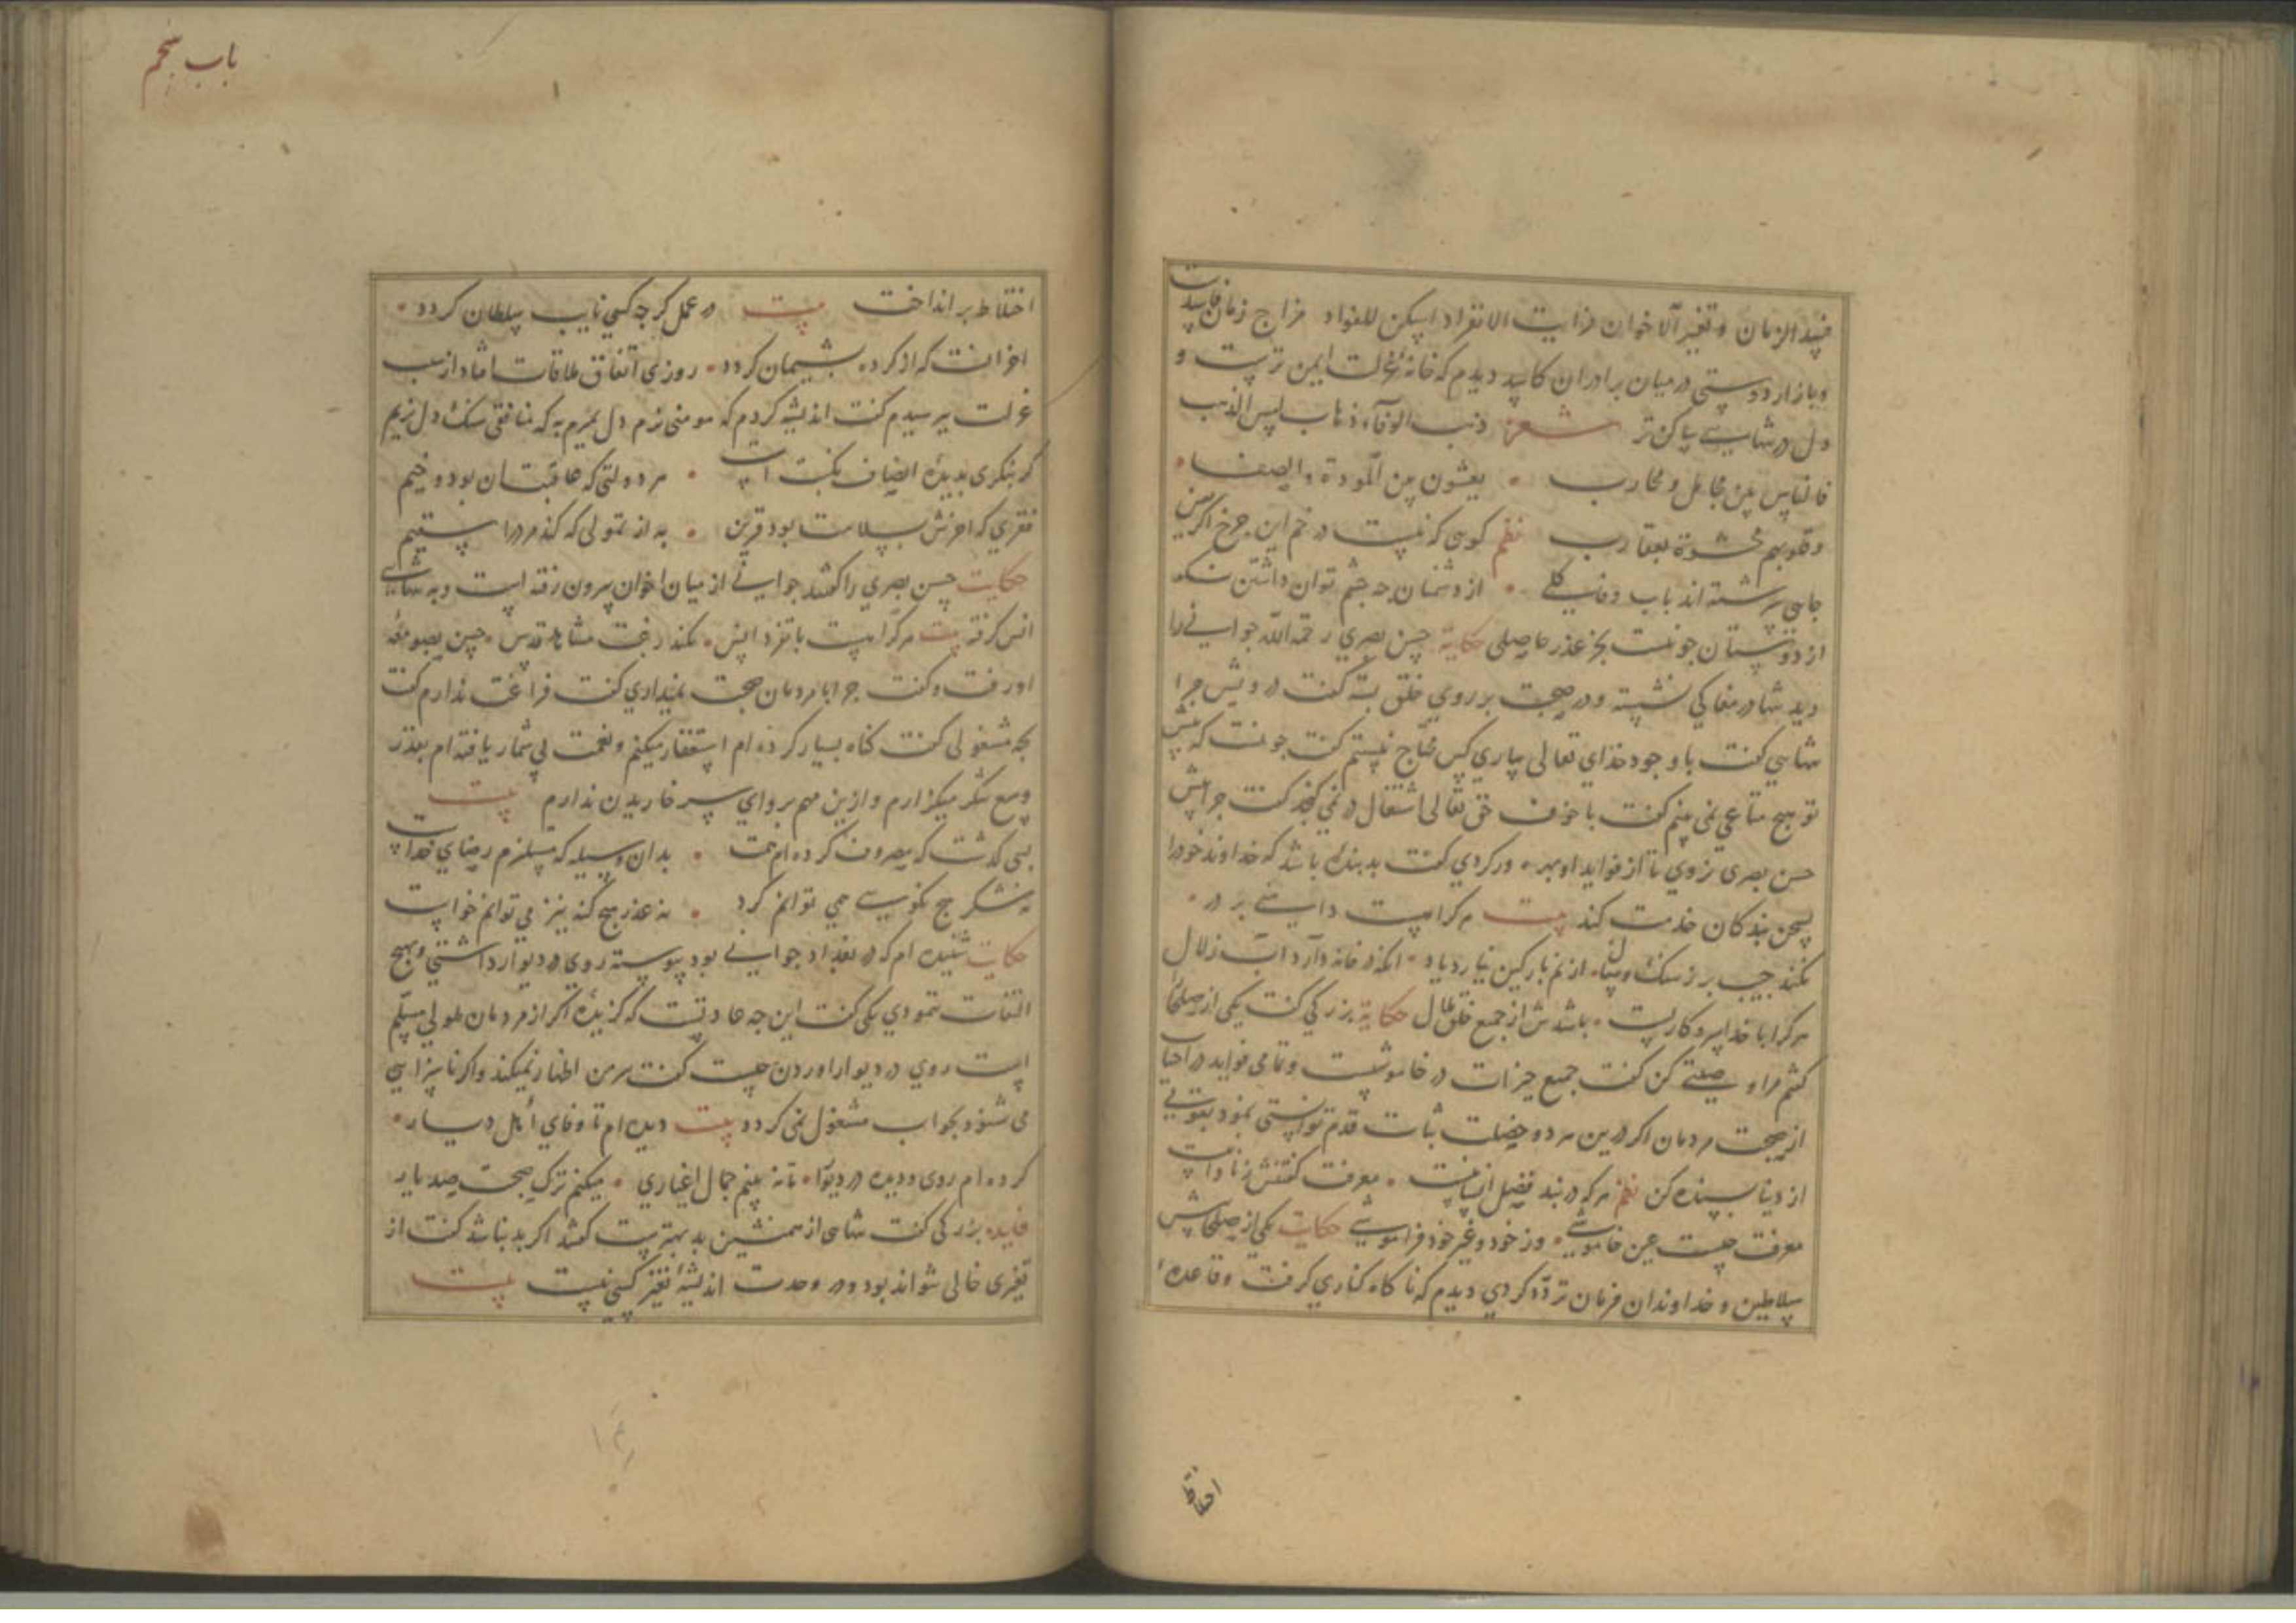 فسد الزمان و تغیر الاخوان فرایت الانفراد اسکن للفواد مزاج زمان فاسدست
و بازار دوستی در میان برادران کاسد دیدم که خانه عزلت ایمن ترست و
دل در تنهایی ساکن تر شعر ذهب الوفاء ذهاب امس الذاهب
فالناس بین مخاتل و محارب • یفشون بین المودة و الصفا •
و قلوبهم محشوة بعقارب نظم کوسی که نیست در خم این چرخ اکر
جایی سرشته اند باب وفا کلی • از دشمنان چه چشم توان داشتن
از دوستان چو نیست بجز عذر حاصلی حکایة حسن بصری رحمة الله جوانی را
دید تنها در مغاکی نشسته و در صحبت بر روی خلق بسته کفت درویش چرا
تنهایی کفت با وجود خدای تعالی بیاری کس محتاج نیستم کفت چونست که پیش
تو هیچ متاعی نمی بینم کفت با خوف حق تعالی اشتغال در نمی کنجد کفت چرا پیش
حسن بصری نروی تا از فواید او بهره ور کردی کفت بد بنده باشد که خداوند خود را
بسخن بندکان خدمت کند بیت هر کرا هست دایه بر در •
نکند جیب پر ز سنک و سفال از نم بارکین نیارد یاد • انکه در خانه دارد آب زلال
هر کرا با خدا سر و کاریست • باشدش از جمیع خلق ملال حکایة بزرکی کفت یکی از صلحا
کفتم مرا وصیتی کن کفت جمیع خیرات در خاموشیست و تمامی فواید در اجتناب
از صحبت مردمان اکر درین هر دو خصلت ثبات قدم توانستی نمود بقوتی
از دنیا بسنده کن نظم هر که در بند فضل انسانیست • معرفت کفتنش ز نادانیست
معرفت چیست عین خاموشی • وز خود و غیر خود فراموشی حکایت یکی از صلحا پیش
سلاطین و خداوندان فرمان تردد کردی دیدم که ناکاه کناری کرفت و قاعده
اختلاط
باب پنجم
اختلاط بر انداخت بیت در عمل کر چه کسی نایب سلطان کردد •
اخر انست که از کرده پشیمان کردد • روزی اتفاق ملاقات افتاد از سبب
عزلت پرسیدم کفت اندیشه کردم که مومنی نرم دل بمیرم به که منافقی سنک دل زیم
کر بنکری بدیده انصاف نکبت است • هر دولتی که عاقبتان بود وخیم
فقری که اخرش بسلامت بود قرین • به از تمولی که کند مرد را سقیم
حکایت حسن بصری را کفتند جوانی از میان اخوان بیرون رفته است و به تنهایی
انس کرفته بیت هر کرا هست با تفرد انس • نکند رغبت مشاهد قدس • حسن بصومعه
او رفت و کفت چرا با مردمان صحبت نمیداری کفت فراغت ندارم کفت
بچه مشغولی کفت کناه بسیار کرده ام استغفار میکنم و نعمت بی شمار یافته ام بقدر
وسع شکر میکزارم و ازین مهم پروای سر خاریدن ندارم بیت
بسی کذشت که مصروف کرده ام همت • بدان وسیله که مستلزم رضای خداست
نه شکر هیچ نکویی همی توانم کرد • نه عذر هیچ کنه نیز می توانم خواست
حکایت شنیده ام که در بغداد جوانی بود پیوسته روی در دیوار داشتی و بهیچ
التفات ننمودی یکی کفت این چه عادتست که کزیده اکر از مردمان ملولی مسلم
است روی در دیوار اوردن چیست کفت سر من اظهار نمیکند و اکر ناسزایی
می شنود بجواب مشغول نمی کردد بیت دیده ام تا وفای اهل دیار •
کرده ام روی و دیده در دیوار • تا نه بینم جمال اغیاری • میکنم ترک صحبت صد یار
فایده بزرکی کفت تنهایی از همنشین بد بهترست کفتند اکر بد نباشد کفت از
تغیری خالی نتواند بود و در وحدت اندیشه تغیر کسی نیست بیت